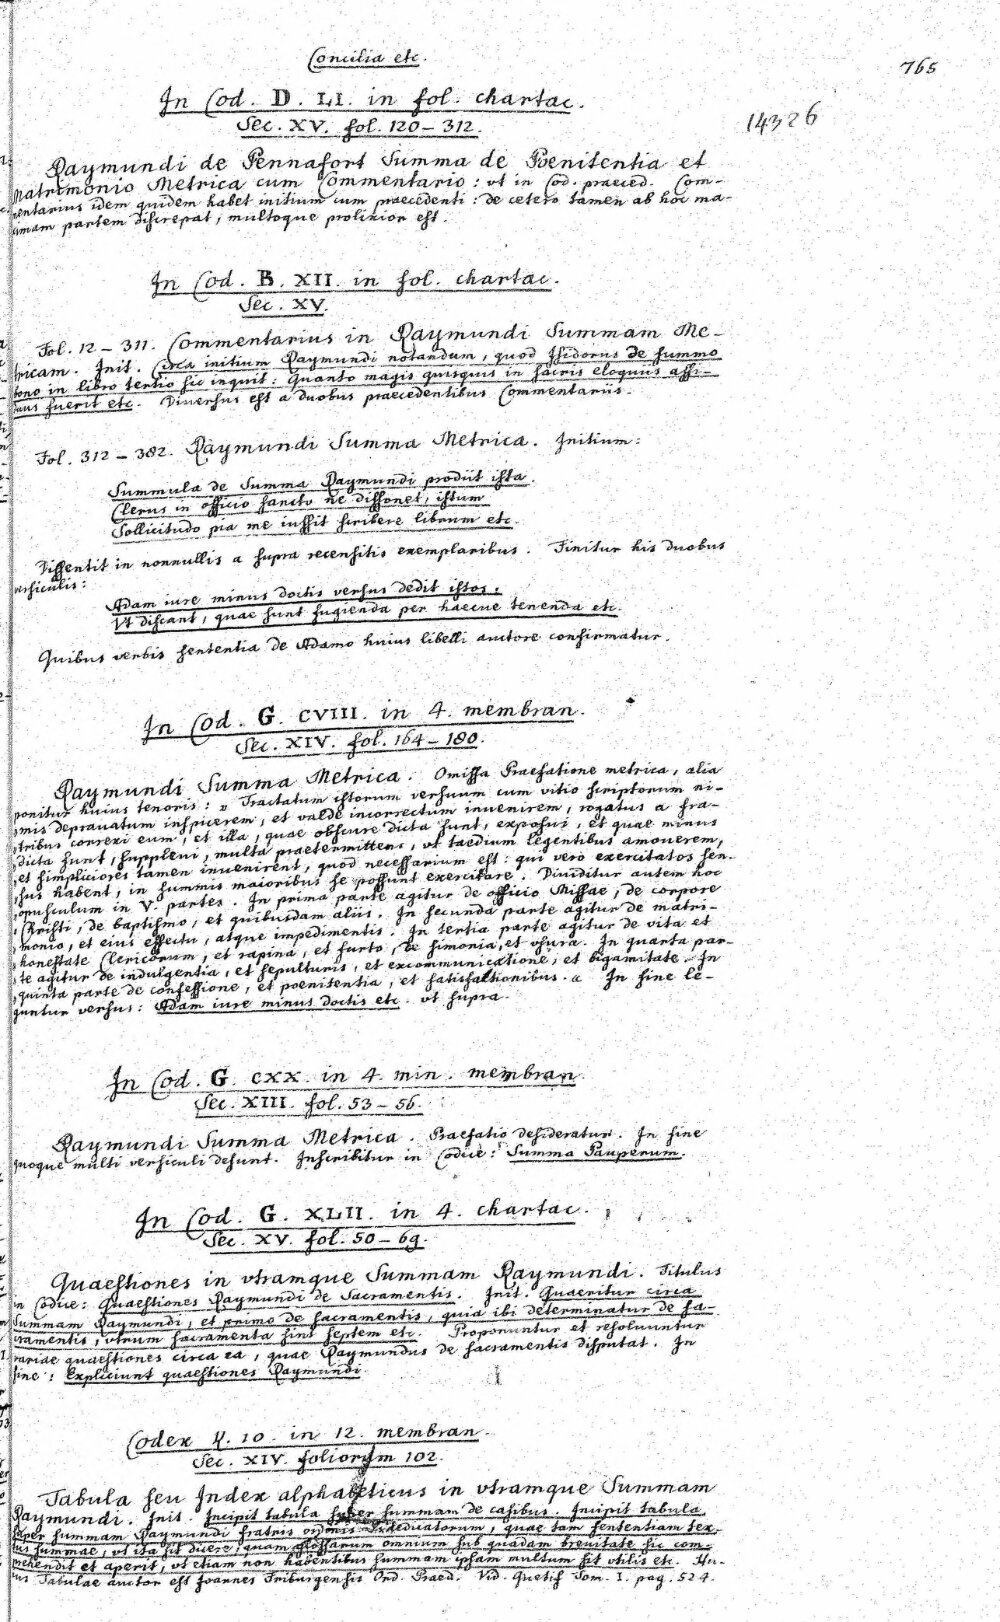 Concilia etc.
765
In Cod. D. LI. in fol. chartac.
14326
Sec. XV. fol. 120 – 312.
Raymundi de Pennafort Summa de Poenitentia et
Matrimonio Metrica cum Commentario: vt in Cod. praeced. Com-
mentarius idem quidem habet initium cum praecedenti: de cetero tamen ab hoc ma-
ximam partem discrepat, multoque prolixior est.
In Cod. B. XII. in fol. chartac.
Sec. XV.
Fol. 12 – 311. Commentarius in Raymundi Summam Me-
tricam. Init. Circa initium Raymundi notandum, quod Isidorus de summo
bono in libro tertio sic inquit: Quanto magis quisquis in sacris eloquiis assi-
duus fuerit etc. Diuersus est a duobus praecedentibus Commentariis.
Fol. 312 – 382. Raymundi Summa Metrica. Initium:
Summula de Summa Raymundi prodiit ista.
Clerus in officio sancto ne dissonet, istum
Sollicitudo pia me iussit scribere librum etc.
Dissentit in nonnullis a supra recensitis exemplaribus. Finitur his duobus
versiculis:
Adam iure minus doctis versus dedit istos:
Vt discant, quae sunt fugienda per haecue tenenda etc.
Quibus verbis sententia de Adamo huius libelli auctore confirmatur.
In Cod. G. CVIII. in 4. membran.
Sec. XIV. fol. 164 – 180.
Raymundi Summa Metrica. Omissa Praefatione metrica, alia
ponitur huius tenoris: υ Tractatum istorum versuum cum vitio scriptorum ni-
„mis deprauatum inspicerem, et valde incorrectum inuenirem, rogatus a fra-
„tribus correxi eum, et illa, quae obscure dicta sunt, exposui, et quae minus
„dicta sunt, suppleui, multa praetermittens, vt taedium legentibus amouerem,
„et simpliciores tamen inuenirent, quod necessarium est: qui vero exercitatos sen-
„sus habent, in summis maioribus se possunt exercitare. Diuiditur autem hoc
„opusculum in V. partes. In prima parte agitur de officio Missae, de corpore
„Christi, de baptismo, et quibusdam aliis. In secunda parte agitur de matri-
„monio, et eius effectu, atque impedimentis. In tertia parte agitur de vita et
„honestate Clericorum, et rapina, et furto, de simonia, et vsura. In quarta par-
„te agitur de indulgentia, et sepulturis, et excommunicatione, et bigamitate. In
„quinta parte de confessione, et poenitentia, et satisfactionibus. a In fine le-
guntur versus: Adam iure minus doctis etc. vt supra.
In Cod. G. CXX. in 4. min. membran.
Sec. XIII. fol. 53 – 56.
Raymundi Summa Metrica. Praefatio desideratur. In fine
quoque multi versiculi desunt. Inscribitur in Codice: Summa Pauperum.
In Cod. G. XLII. in 4. chartac.
Sec. XV. fol. 50 – 69.
Quaestiones in vtramque Summam Raymundi. Titulus
in Codice: Quaestiones Raymundi de Sacramentis. Init. Quaeritur circa
Summam Raymundi, et primo de sacramentis, quia ibi determinatur de sa-
cramentis, vtrum sacramenta sint septem etc. Proponuntur et resoluuntur
variae quaestiones circa ea, quae Raymundus de sacramentis disputat. In
fine: Expliciunt quaestiones Raymundi.
Codex Y. 10. in 12. membran.
Sec. XIV. foliorum 102.
Tabula seu Index alphabeticus in vtramque Summam
Raymundi. Init. Incipit tabula super summam de casibus. Incipit tabula
super summam Raymundi fratris ordinis Praedicatorum, quae tam sententiam tex-
tus summae, vt ita sit dicere, quam glossarum omnium sub quadam breuitate sic com-
prehendit et aperit, vt etiam non habentibus summam ipsam multum sit vtilis etc. Hu-
ius Tabulae auctor est Joannes Friburgensis Ord. Praed. Vid. Quetif Tom. I. pag. 524.